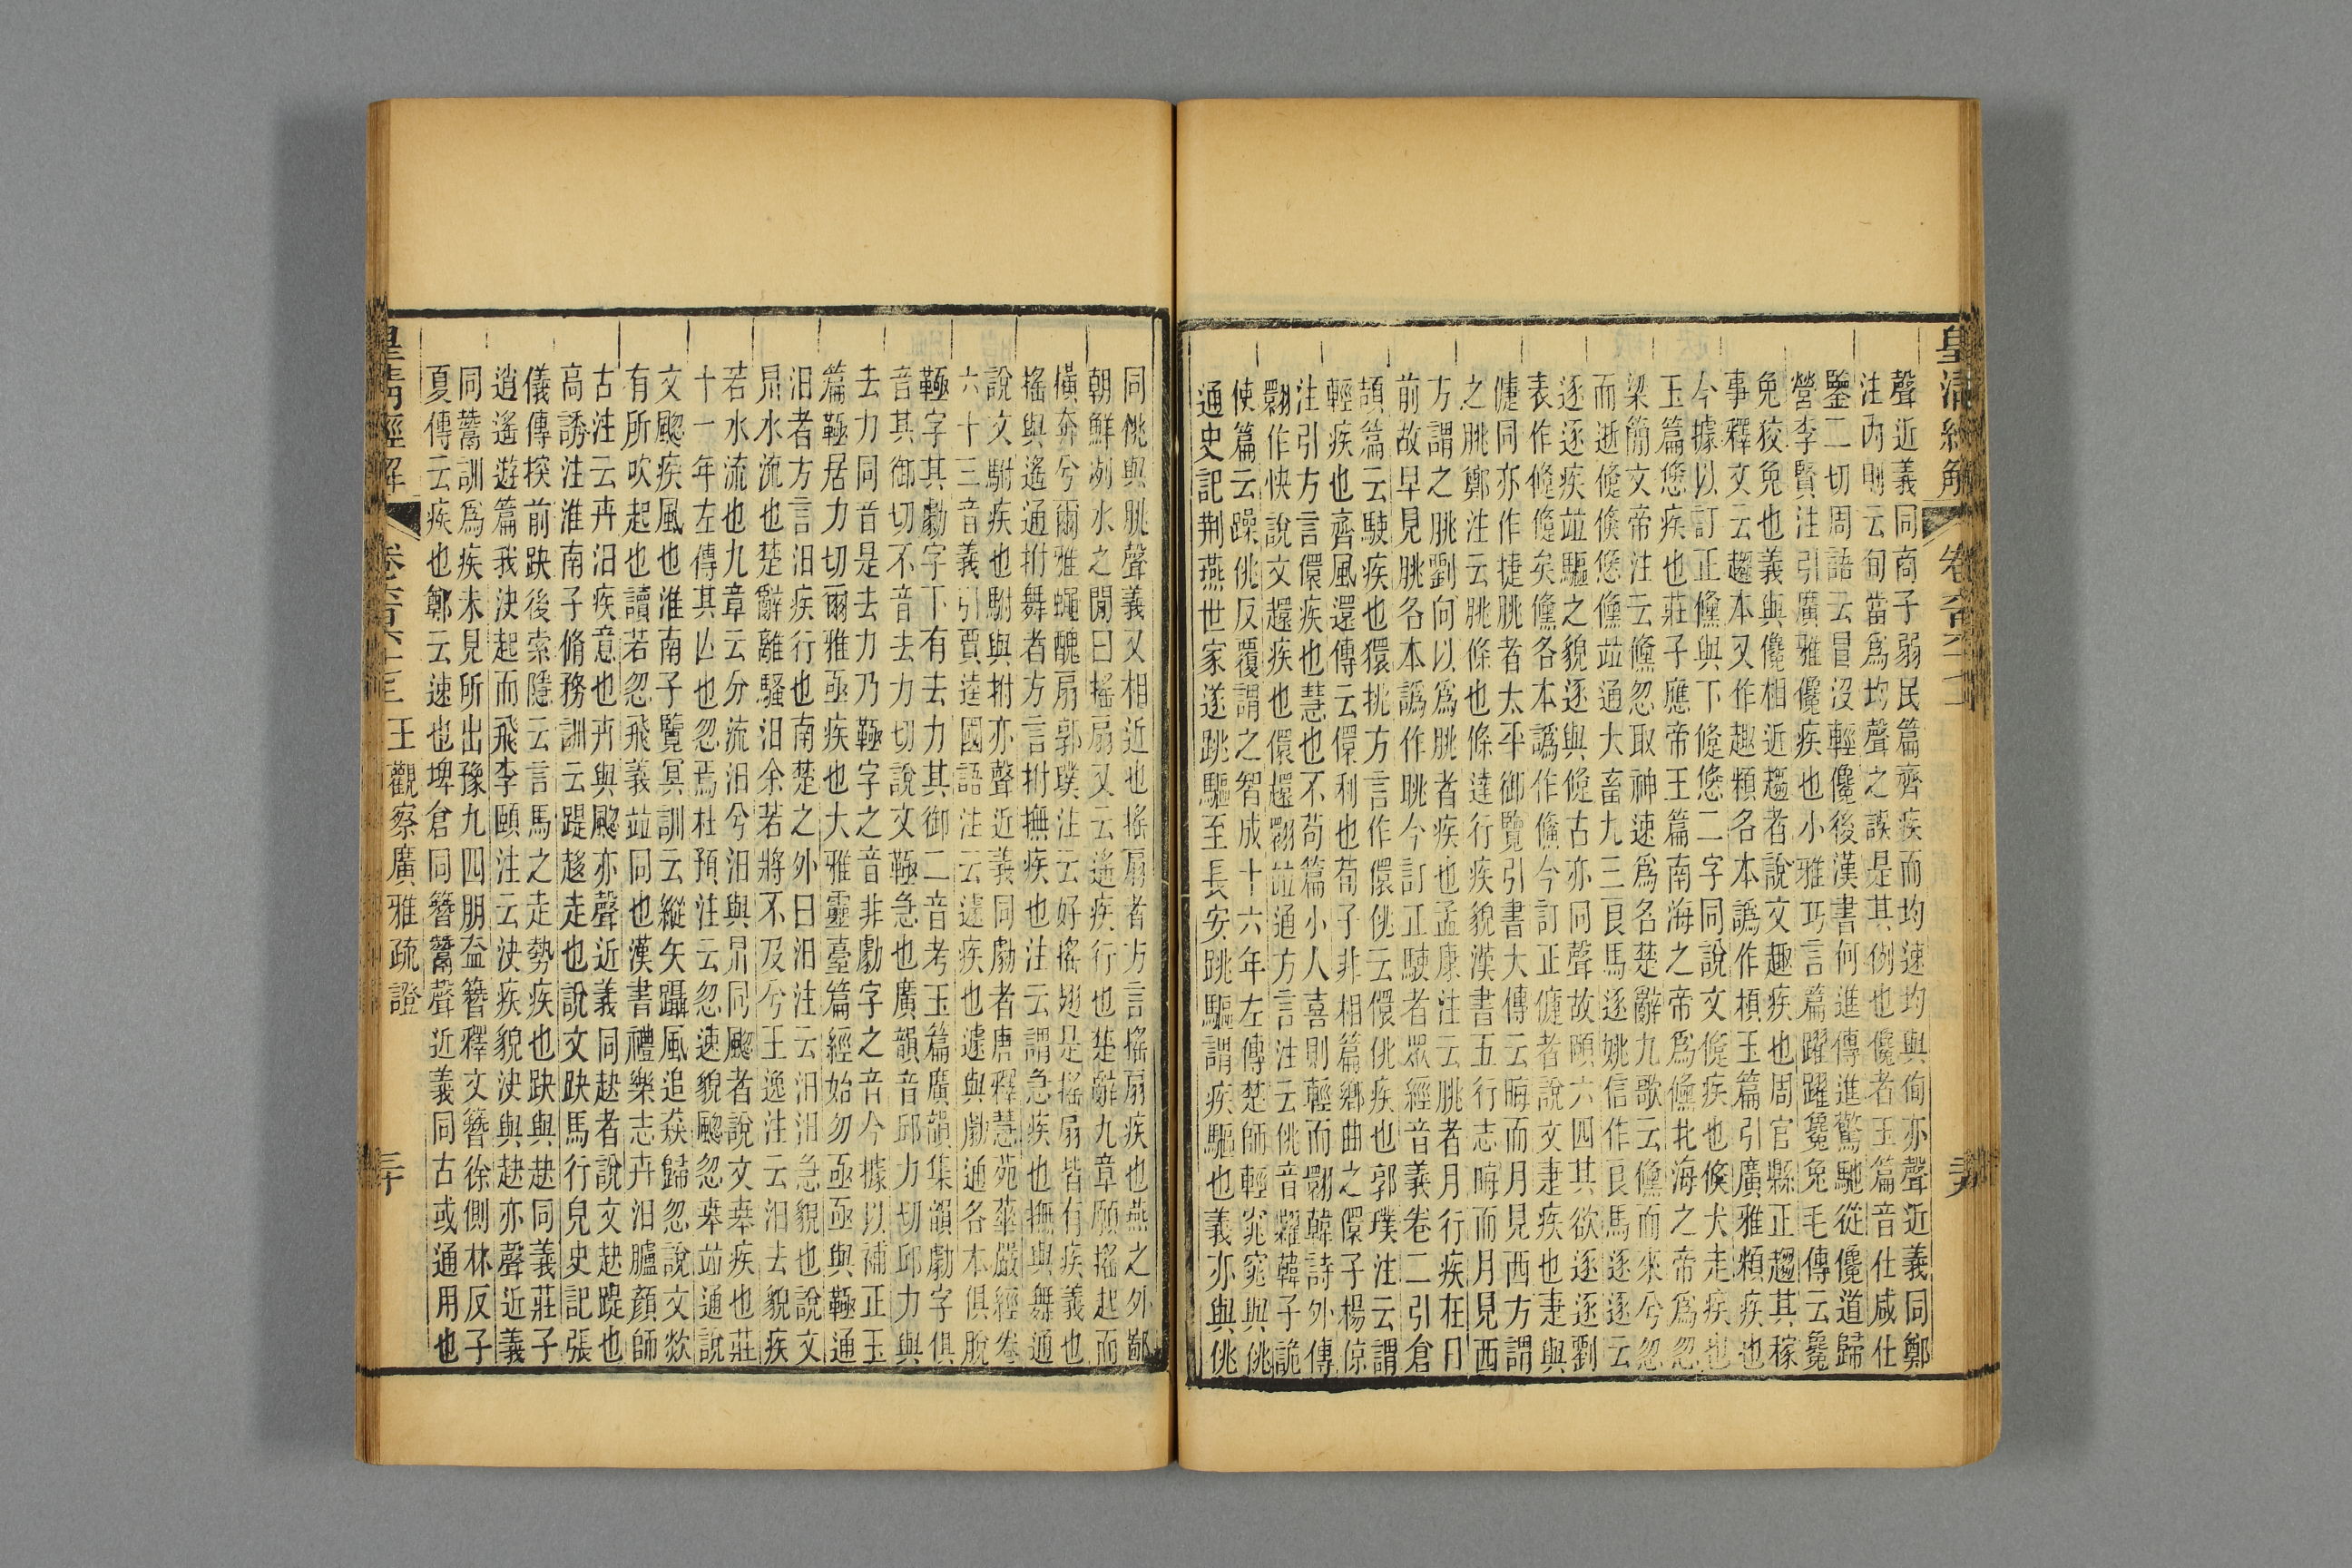 皇清經解
卷六百六十七
聲近義同商子弱民篇齊疾而均速均與侚亦聲近義同鄭
注內則云旬當爲均聲之誤是其例也儳者玉篇音仕咸仕
鑒二切周語云冒沒輕儳後漢書何進傳進驚馳從儳道歸
營李賢注引廣雅儳疾也小雅巧言篇躍躍毚兔毛傳云毚
兔狡兔也義與儳相近趨者說文趣疾也周官縣正趨其稼
事釋文云趨本又作趣頪各本譌作㮯玉篇引廣雅頪疾也
今據以訂正儵與下倏悠二字同說文倏疾也倏犬走疾也
玉篇悠疾也莊子應帝王篇南海之帝爲儵北海之帝爲忽
梁簡文帝注云儵忽取神速爲名楚辭九歌云儵而來兮忽
而逝倏倐悠儵竝通大畜九三良馬逐姚信作良馬逐逐云
逐逐疾竝驅之貌逐與倏古亦同聲故頤六四其欲逐逐劉
表作儵儵矣儵各本譌作儵今訂正倢者說文疌疾也疌與
倢同亦作捷朓者太平御覽引書大傳云晦而月見西方謂
之朓鄭注云朓條也條達行疾貌漢書五行志晦而月見西
方謂之朓劉向以爲朓者疾也孟康注云朓者月行疾在日
前故早見朓各本譌作眺今訂正駛者眾經音義卷二引倉
頡篇云駛疾也獧挑方言作儇佻云儇佻疾也郭璞注云謂
輕疾也齊風還傳云儇利也荀子非相篇鄉曲之儇子楊倞
注引方言儇疾也慧也不苟篇小人喜則輕而翾韓詩外傳
翾作快說文趩疾也儇趩翾竝通方言注云佻音糶韓子詭
使篇云躁佻反覆謂之智成十六年左傳楚師輕窕窕與佻
通史記荆燕世家遂跳驅至長安跳驅謂疾驅也義亦與佻
同佻與朓聲義又相近也搖扇者方言搖扇疾也燕之外鄙
朝鮮洌水之閒曰搖扇又云遙疾行也楚辭九章願搖起而
橫奔兮爾雅蠅醜扇郭璞注云好搖翅是搖扇皆有疾義也
搖與遙通拊舞者方言拊撫疾也注云謂急疾也撫與舞通
說文駙疾也駙與拊亦聲近義同勮者唐釋慧苑華嚴經卷
六十三音義引賈逵國語注云遽疾也遽與勮通各本俱脫
䩯字其勮字下有去力其御二音考玉篇廣韻集韻勮字俱
音其御切不音去力切說文䩯急也廣韻音邱力切邱力與
去力同音是去力乃䩯字之音非勮字之音今據以補正玉
篇䩯居力切爾雅亟疾也大雅靈臺篇經始勿亟亟與䩯通
汨者方言汨疾行也南楚之外曰汨注云汨汨急貌也說文
㫳水流也楚辭離騷汨余若將不及兮王逸注云汨去貌疾
若水流也九章云分流汨兮汨與㫳同颮者說文㚏疾也莊
十一年左傳其亾也忽焉杜預注云忽速貌颮忽㚏竝通說
文颮疾風也淮南子覽冥訓云縱矢躡風追猋歸忽說文欻
有所吹起也讀若忽飛義竝同也漢書禮樂志卉汨臚顏師
古注云卉汨疾意也卉與颮亦聲近義同赽者說文赽踶也
高誘注淮南子脩務訓云踶趍走也說文趹馬行皃史記張
儀傳探前趹後索隱云言馬之走勢疾也趹與赽同義莊子
逍遙遊篇我決起而飛李頤注云決疾貌決與赽亦聲近義
同鷟訓爲疾未見所出豫九四朋盍簪釋文簪徐側林反子
夏傳云疾也鄭云速也埤倉同簪鷟聲近義同古或通用也
皇清經解
卷六百六十七
王觀察廣雅疏證
三十